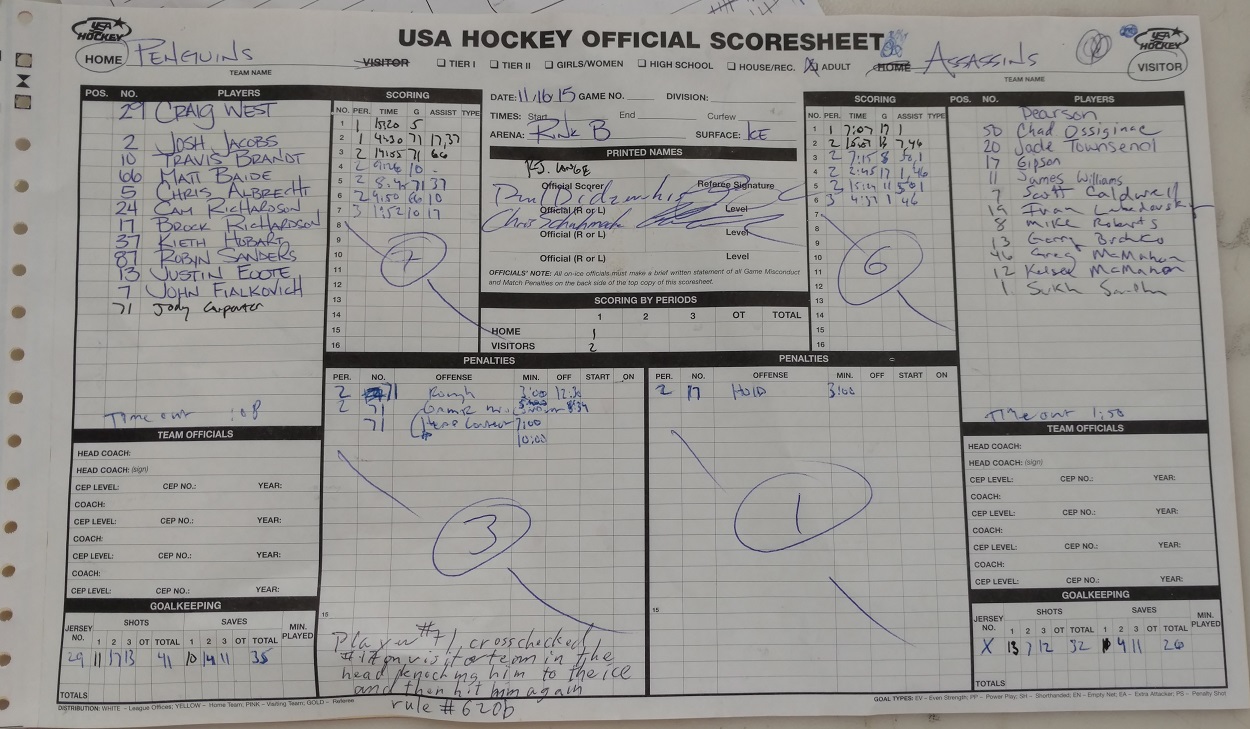 USA HOCKEY
USA HOCKEY OFFICIAL SCORESHEET
USA HOCKEY
HOME PENGUINS
TEAM NAME
VISITOR ☐ TIER I ☐ TIER II ☐ GIRLS/WOMEN ☐ HIGH SCHOOL ☐ HOUSE/REC. ☒ ADULT HOME
ASSASSINS
TEAM NAME
VISITOR
POS. NO. PLAYERS
29 CRAIG WEST
2 JOSH JACOBS
10 TRAVIS BRANDT
66 MATT BAIDE
5 CHRIS ALBRECHT
24 CAM RICHARDSON
17 BROCK RICHARDSON
37 KIETH HOBART
87 ROBYN SANDERS
13 JUSTIN FOOTE
7 JOHN FIALKOVICH
71 Jody Carpenter
Time out :08
SCORING
NO. PER. TIME G ASSIST TYPE
1 1 15:20 5
2 1 4:30 71 17,37
3 2 14:05 71 66
4 2 10 -
5 2 71 37
6 2 9:50 66 10
7 3 1:52 10 17
8
9
10
11
12
13
14
15
16
7
DATE: 11/16/15 GAME NO. DIVISION:
TIMES: Start End Curfew
ARENA: RINK B SURFACE: ICE
PRINTED NAMES
P.J. LANGE
Official Scorer Referee Signature
Official (R or L) Level
Chris
Official (R or L) Level
Official (R or L) Level
OFFICIALS' NOTE: All on-ice officials must make a brief written statement of all Game Misconduct
and Match Penalties on the back side of the top copy of this scoresheet.
SCORING BY PERIODS
1 2 3 OT TOTAL
HOME 1
VISITORS 2
SCORING
NO. PER. TIME G ASSIST TYPE
1 1 7:07 17 1
2 2 7,46
3 2 7:15 8 50,1
4 2 2:45 17 1,46
5 2 11 50 1
6 3 4:37 1 46
7
8
9
10
11
12
13
14
15
16
6
POS. NO. PLAYERS
Pearson
50 Chad Ossiginac
20 Jade Townsend
17 Gipson
11 James Williams
7 Scott Caldwell
19 Ivan
8 Mike Roberts
13 Gary
46 Greg McMahon
12 Kelsee McMahon
1 Sukh Sandhu
Time out 1:50
PENALTIES
PER. NO. OFFENSE MIN. OFF START ON
2 71 Rough 3:00
2 71 Game
71 7:00
10:00
3
15
Player #71 crosschecked
on visitor team in the
head knocking him to the ice
and then hit him again
rule # 620b
PENALTIES
PER. NO. OFFENSE MIN. OFF START ON
2 17 Hold 3:00
1
15
TEAM OFFICIALS
HEAD COACH:
HEAD COACH: (sign)
CEP LEVEL: CEP NO.: YEAR:
COACH:
CEP LEVEL: CEP NO.: YEAR:
COACH:
CEP LEVEL: CEP NO.: YEAR:
COACH:
CEP LEVEL: CEP NO.: YEAR:
GOALKEEPING
JERSEY NO. SHOTS SAVES MIN. PLAYED
1 2 3 OT TOTAL 1 2 3 OT TOTAL
29 11 17 13 41 10 14 11 35
TOTALS
TEAM OFFICIALS
HEAD COACH:
HEAD COACH: (sign)
CEP LEVEL: CEP NO.: YEAR:
COACH:
CEP LEVEL: CEP NO.: YEAR:
COACH:
CEP LEVEL: CEP NO.: YEAR:
COACH:
CEP LEVEL: CEP NO.: YEAR:
GOALKEEPING
JERSEY NO. SHOTS SAVES MIN. PLAYED
1 2 3 OT TOTAL 1 2 3 OT TOTAL
X 13 7 12 32 4 11 26
TOTALS
DISTRIBUTION: WHITE – League Offices; YELLOW – Home Team; PINK – Visiting Team; GOLD – Referee
GOAL TYPES: EV – Even Strength; PP – Power Play; SH – Shorthanded; EN – Empty Net; EA – Extra Attacker; PS – Penalty Shot